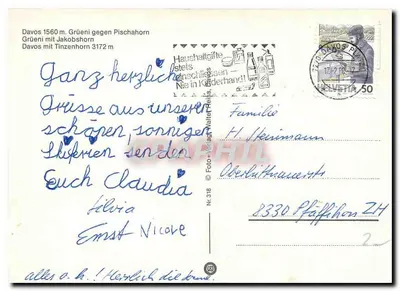 Davos 1560 m. Grüeni gegen Pischahorn
Grüeni mit Jakobshorn
Davos mit Tinzenhorn 3172 m
Haushaltgifte
stets
einschliessen -
Nie in Kinderhand!
HELVETIA 50
Ganz herzliche
Grüsse aus unseren
schönen, sonnigen
Skiferien senden
Euch Claudia
Silvia
Ernst Nicole
alles o.k.! Herzlich
Familie
H. Steinmann
8330 Pfäffikon ZH
Nr. 318